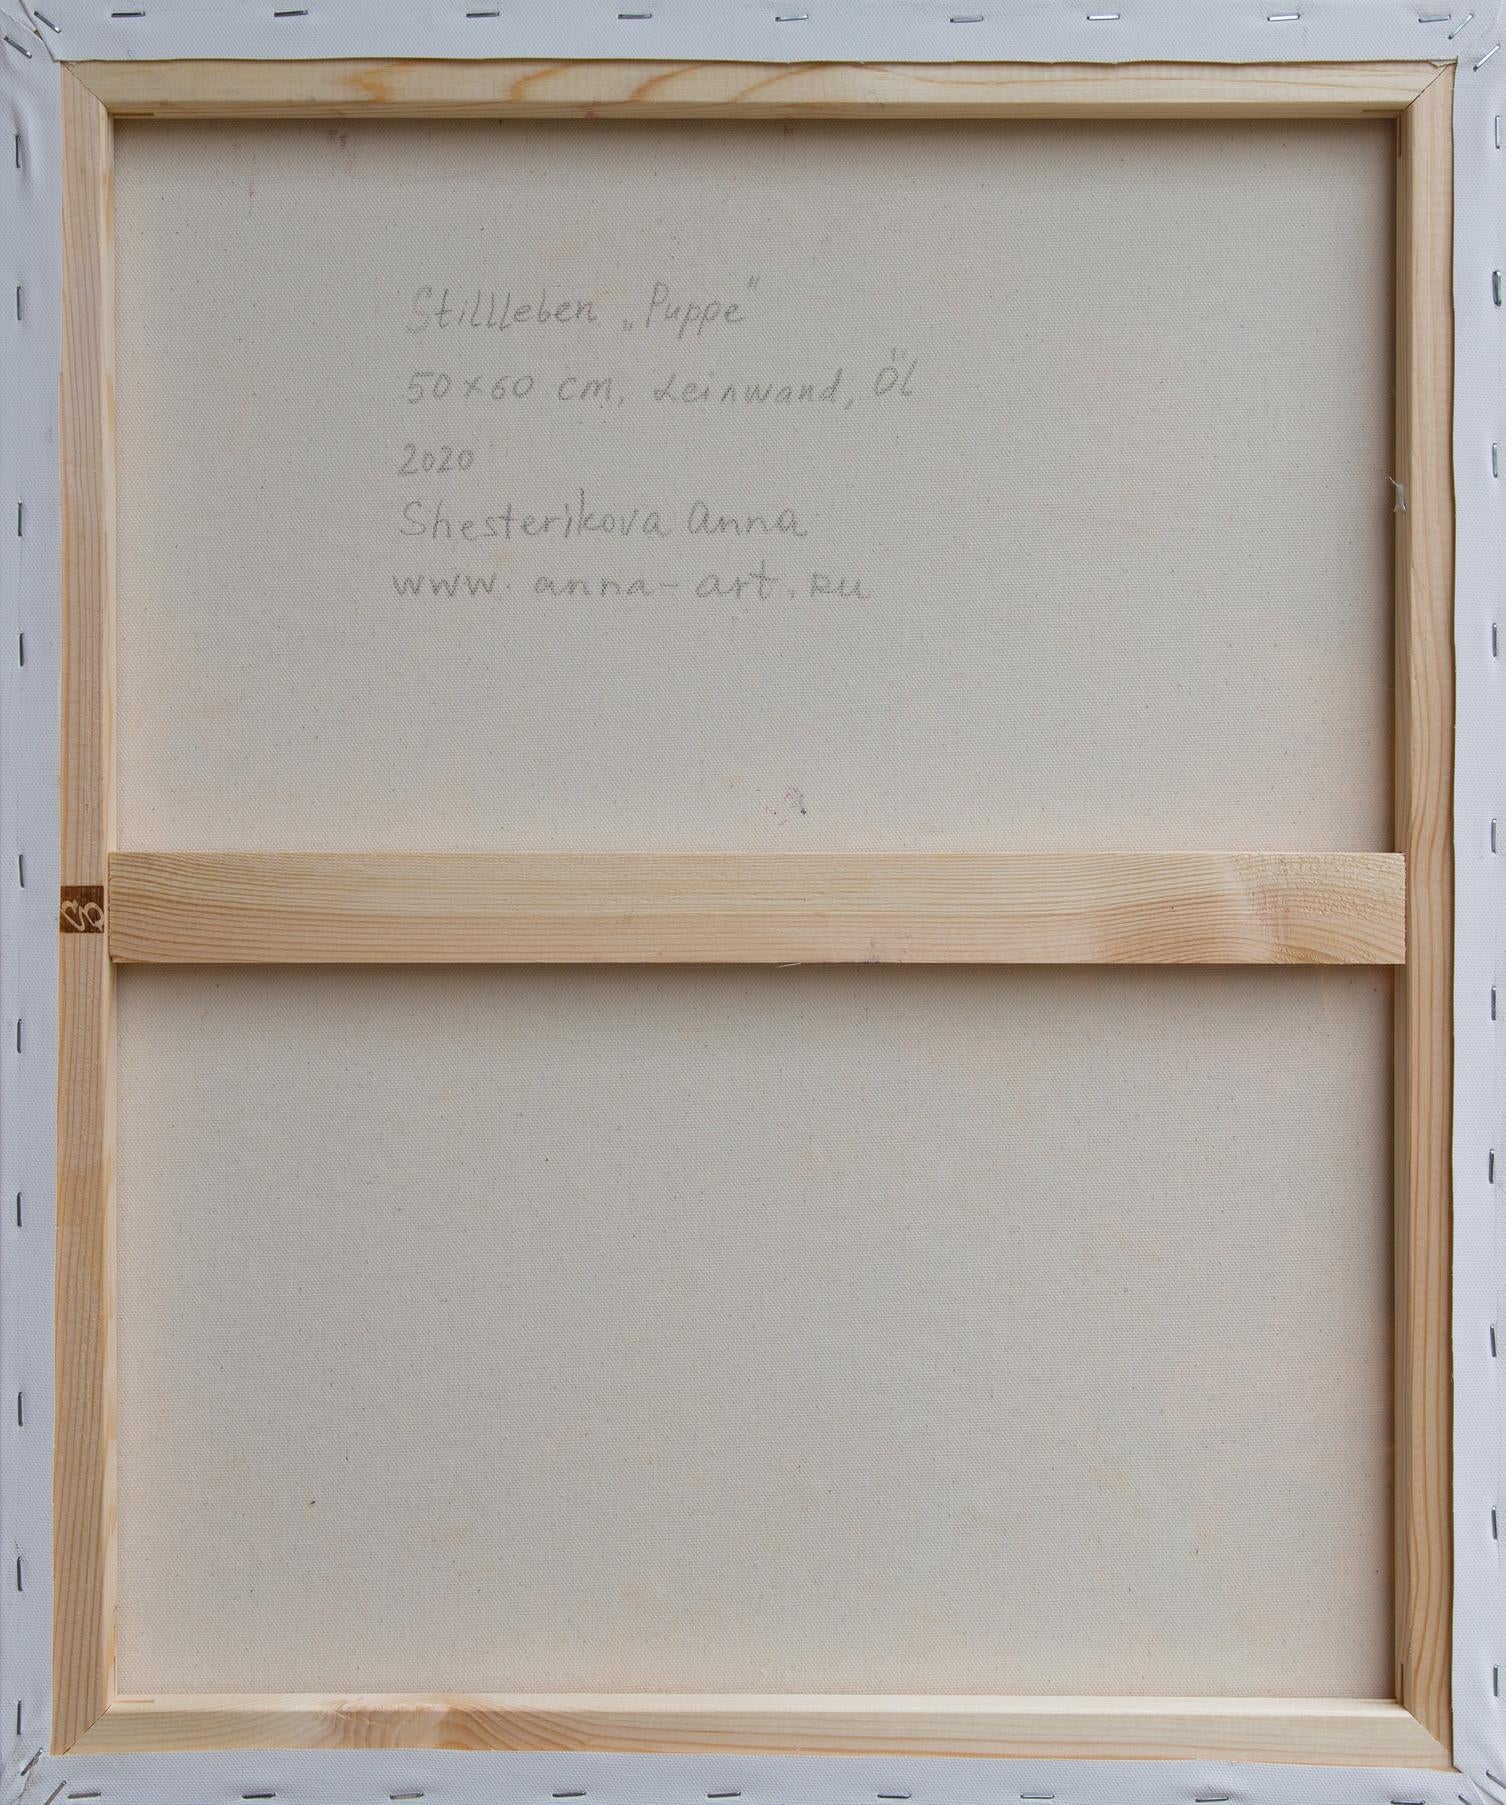 Stillleben „Puppe“
50×60 cm, Leinwand, Öl
2020
Shesterikova Anna
www.anna-art.ru